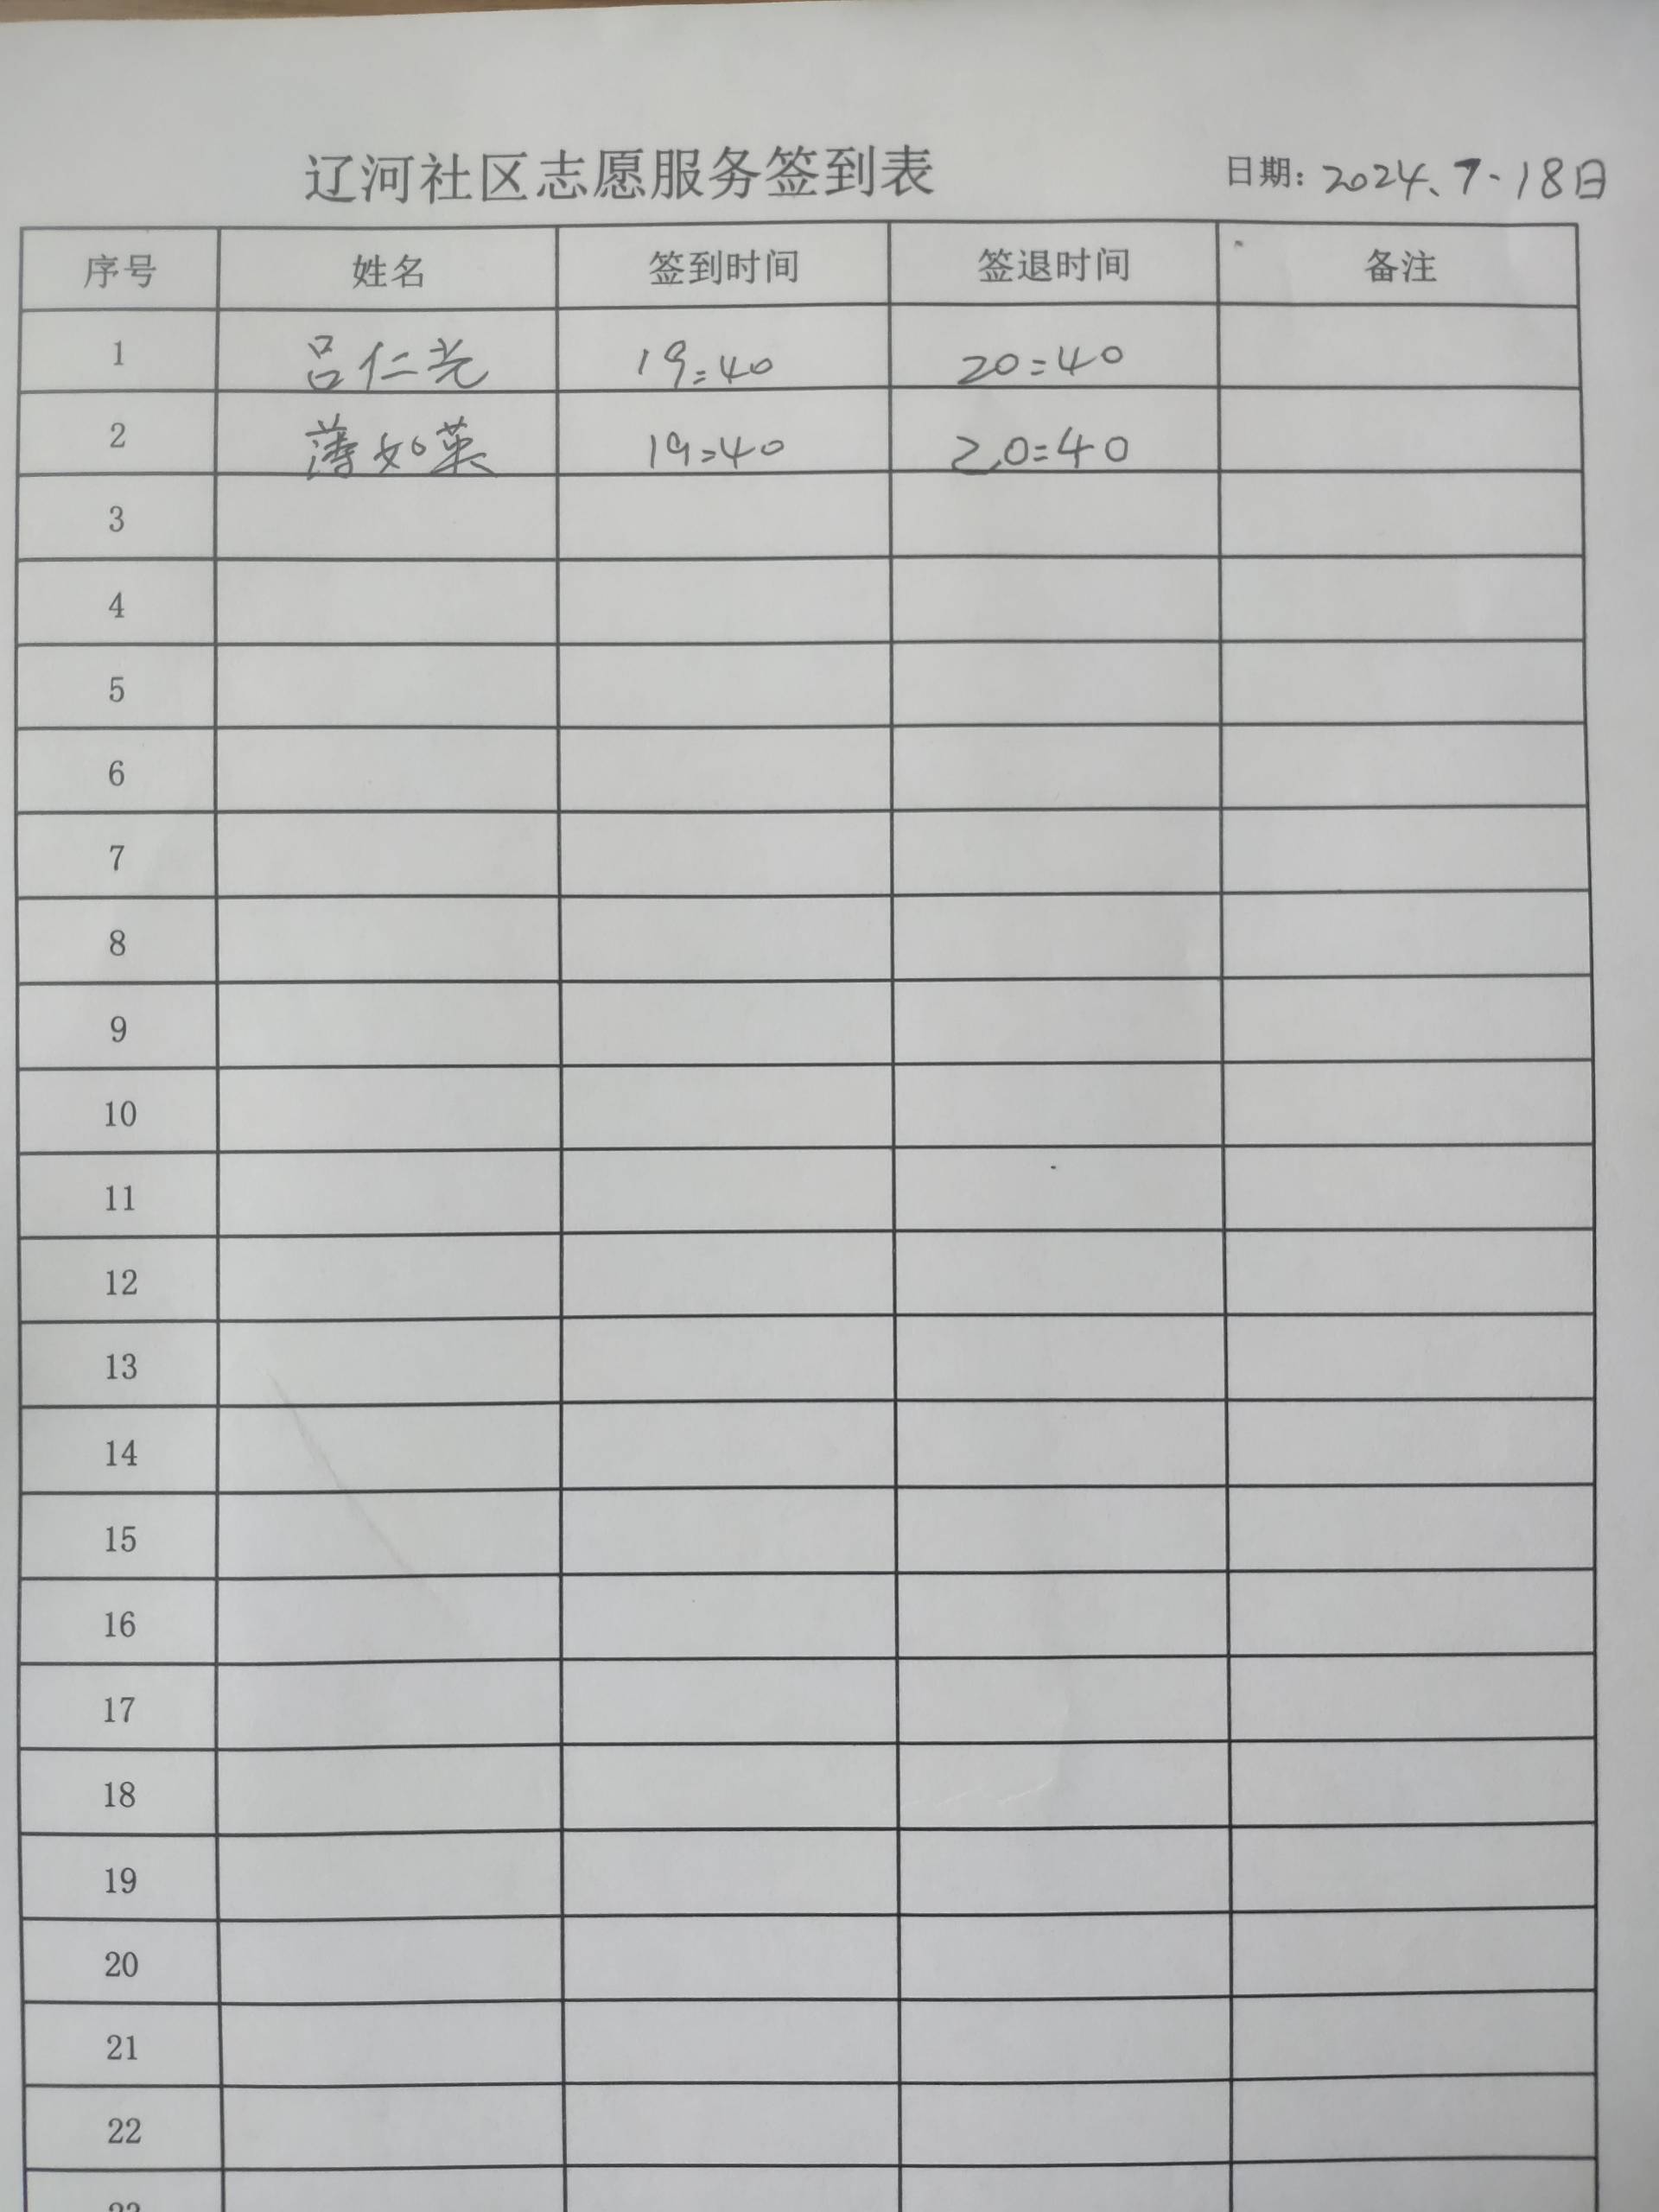 辽河社区志愿服务签到表 日期：2024、7-18日
序号 姓名 签到时间 签退时间 备注
1 吕仁光 19:40 20:40
2 薄如英 19:40 20:40
3
4
5
6
7
8
9
10
11
12
13
14
15
16
17
18
19
20
21
22